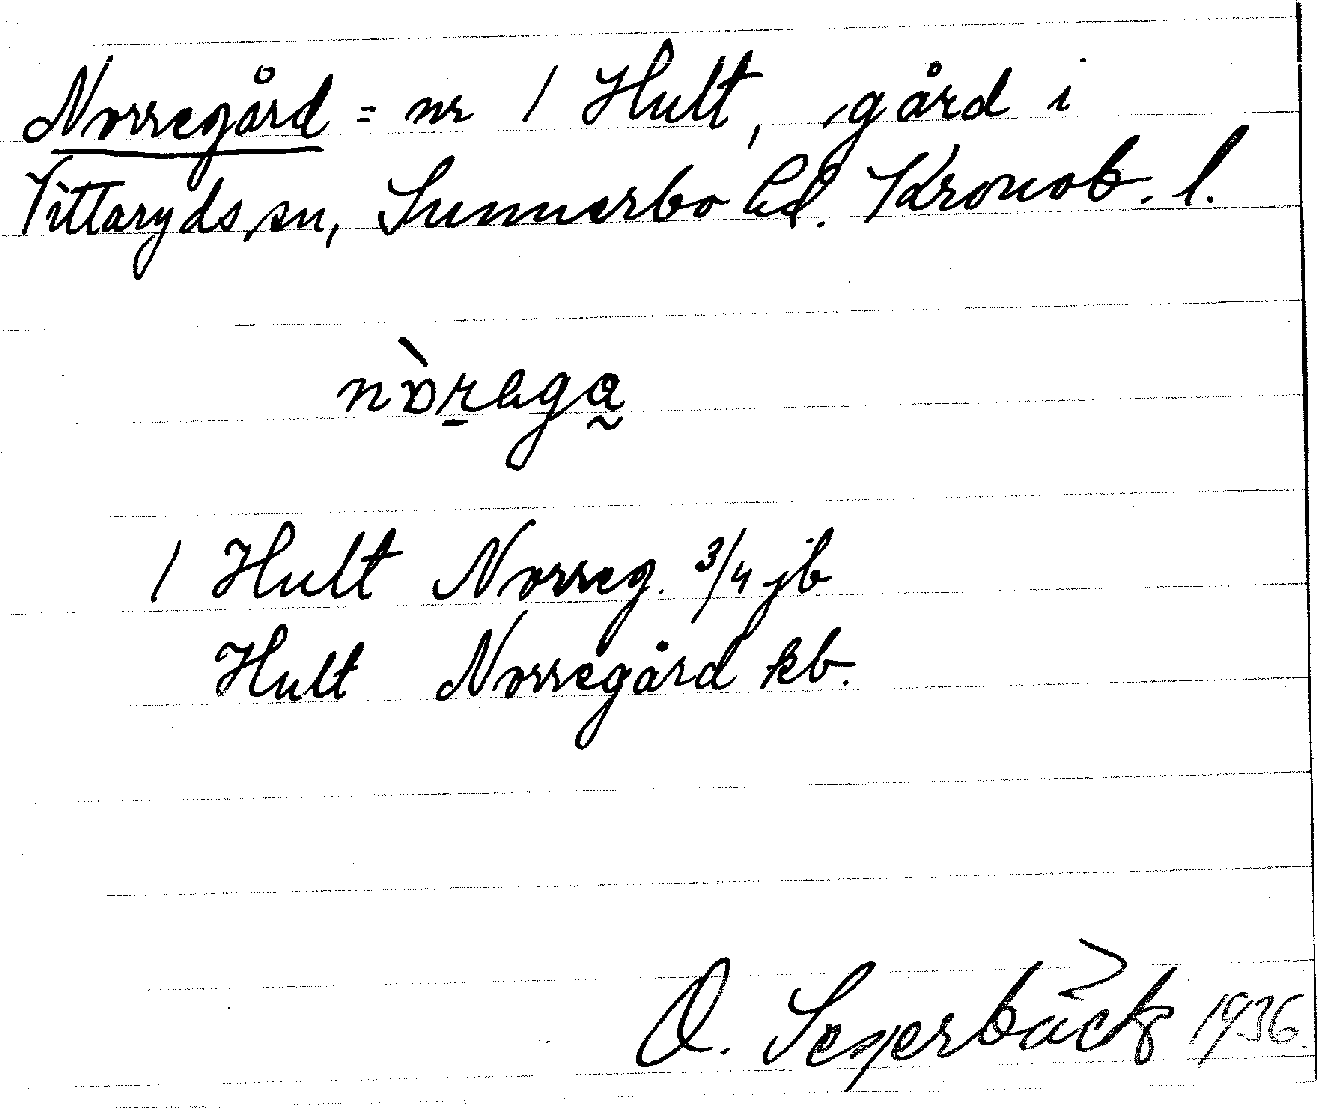 Norregård = nr 1 Hult, gård i
Vittaryds sn, Sunnerbo hd. Kronob. l.
nòrega
1 Hult Norreg. 3/4 jb
Hult Norregård kb.
O. Segerbäck 1936.